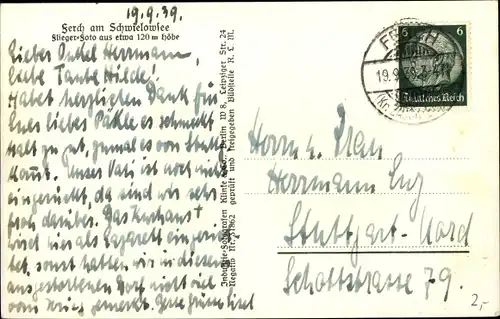 19.9.39.
Ferch am Schwielowsee
Flieger-Foto aus etwa 120 m Höhe
Lieber Onkel Herrmann,
Liebe Tante Hilde!
Habet herzlichen Dank für
Eues liebes Päkle es schmeckt
halt zu gut, zumal es von Stutt
kommt. Unser Vati ist noch nicht
eingerückt, da sind wir sehr
froh darüber. Das Kurhaus
wird hier als Lazarett eingerich-
tet, sonst hatten wir in diesem
ausgestorbenen Dorf nicht viel
vom Krieg gemerkt. Herzl. Grüsse Lisel
Industrie-Fotografen Klinke & Co., Berlin W 8, Leipziger Str. 24
Negativ Nr. 31862 geprüft und freigegeben Bildstelle R. L. M.
FERCH
19.9.39
6 6
Deutsches Reich
Herrn u. Frau
Herrmann
Stuttgart-Nord
Schottstrasse 79.
2,-